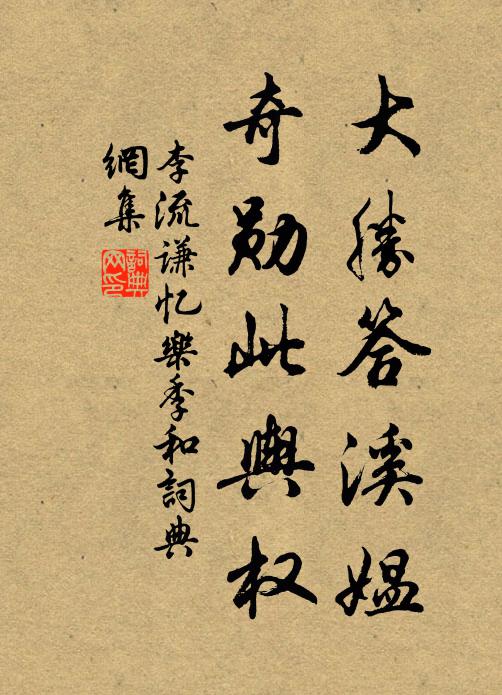 大勝答溪媪
奇勋此輿权
李流谦忆樂季和詞典
網集
詞典网印